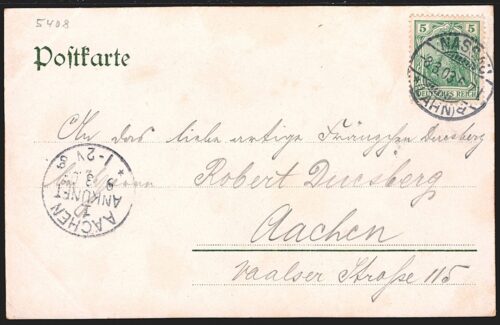 5408
Poſtkarte
5 5
DEUTSCHES REICH
NASSAU
(LAHN)
An das liebe artige Fränzchen Duesberg
Robert Duesberg
Aachen
Vaalser Straße 115
AACHEN
ANKUNFT
1-2V